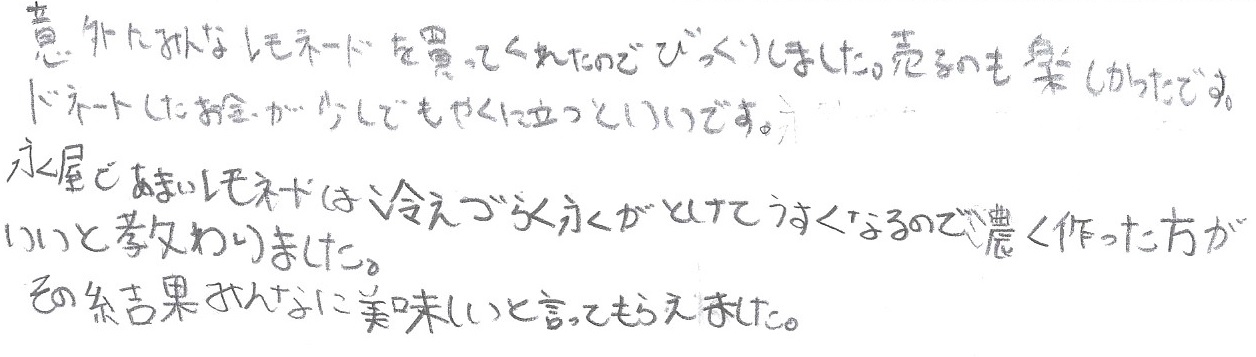 意外にみんなレモネードを買ってくれたのでびっくりしました。売るのも楽しかったです。
ドネートしたお金が少しでもやくに立つといいです。
氷屋であまいレモネードは冷えづらく氷がとけてうすくなるので濃く作った方が
いいと教わりました。
その結果みんなに美味しいと言ってもらえました。